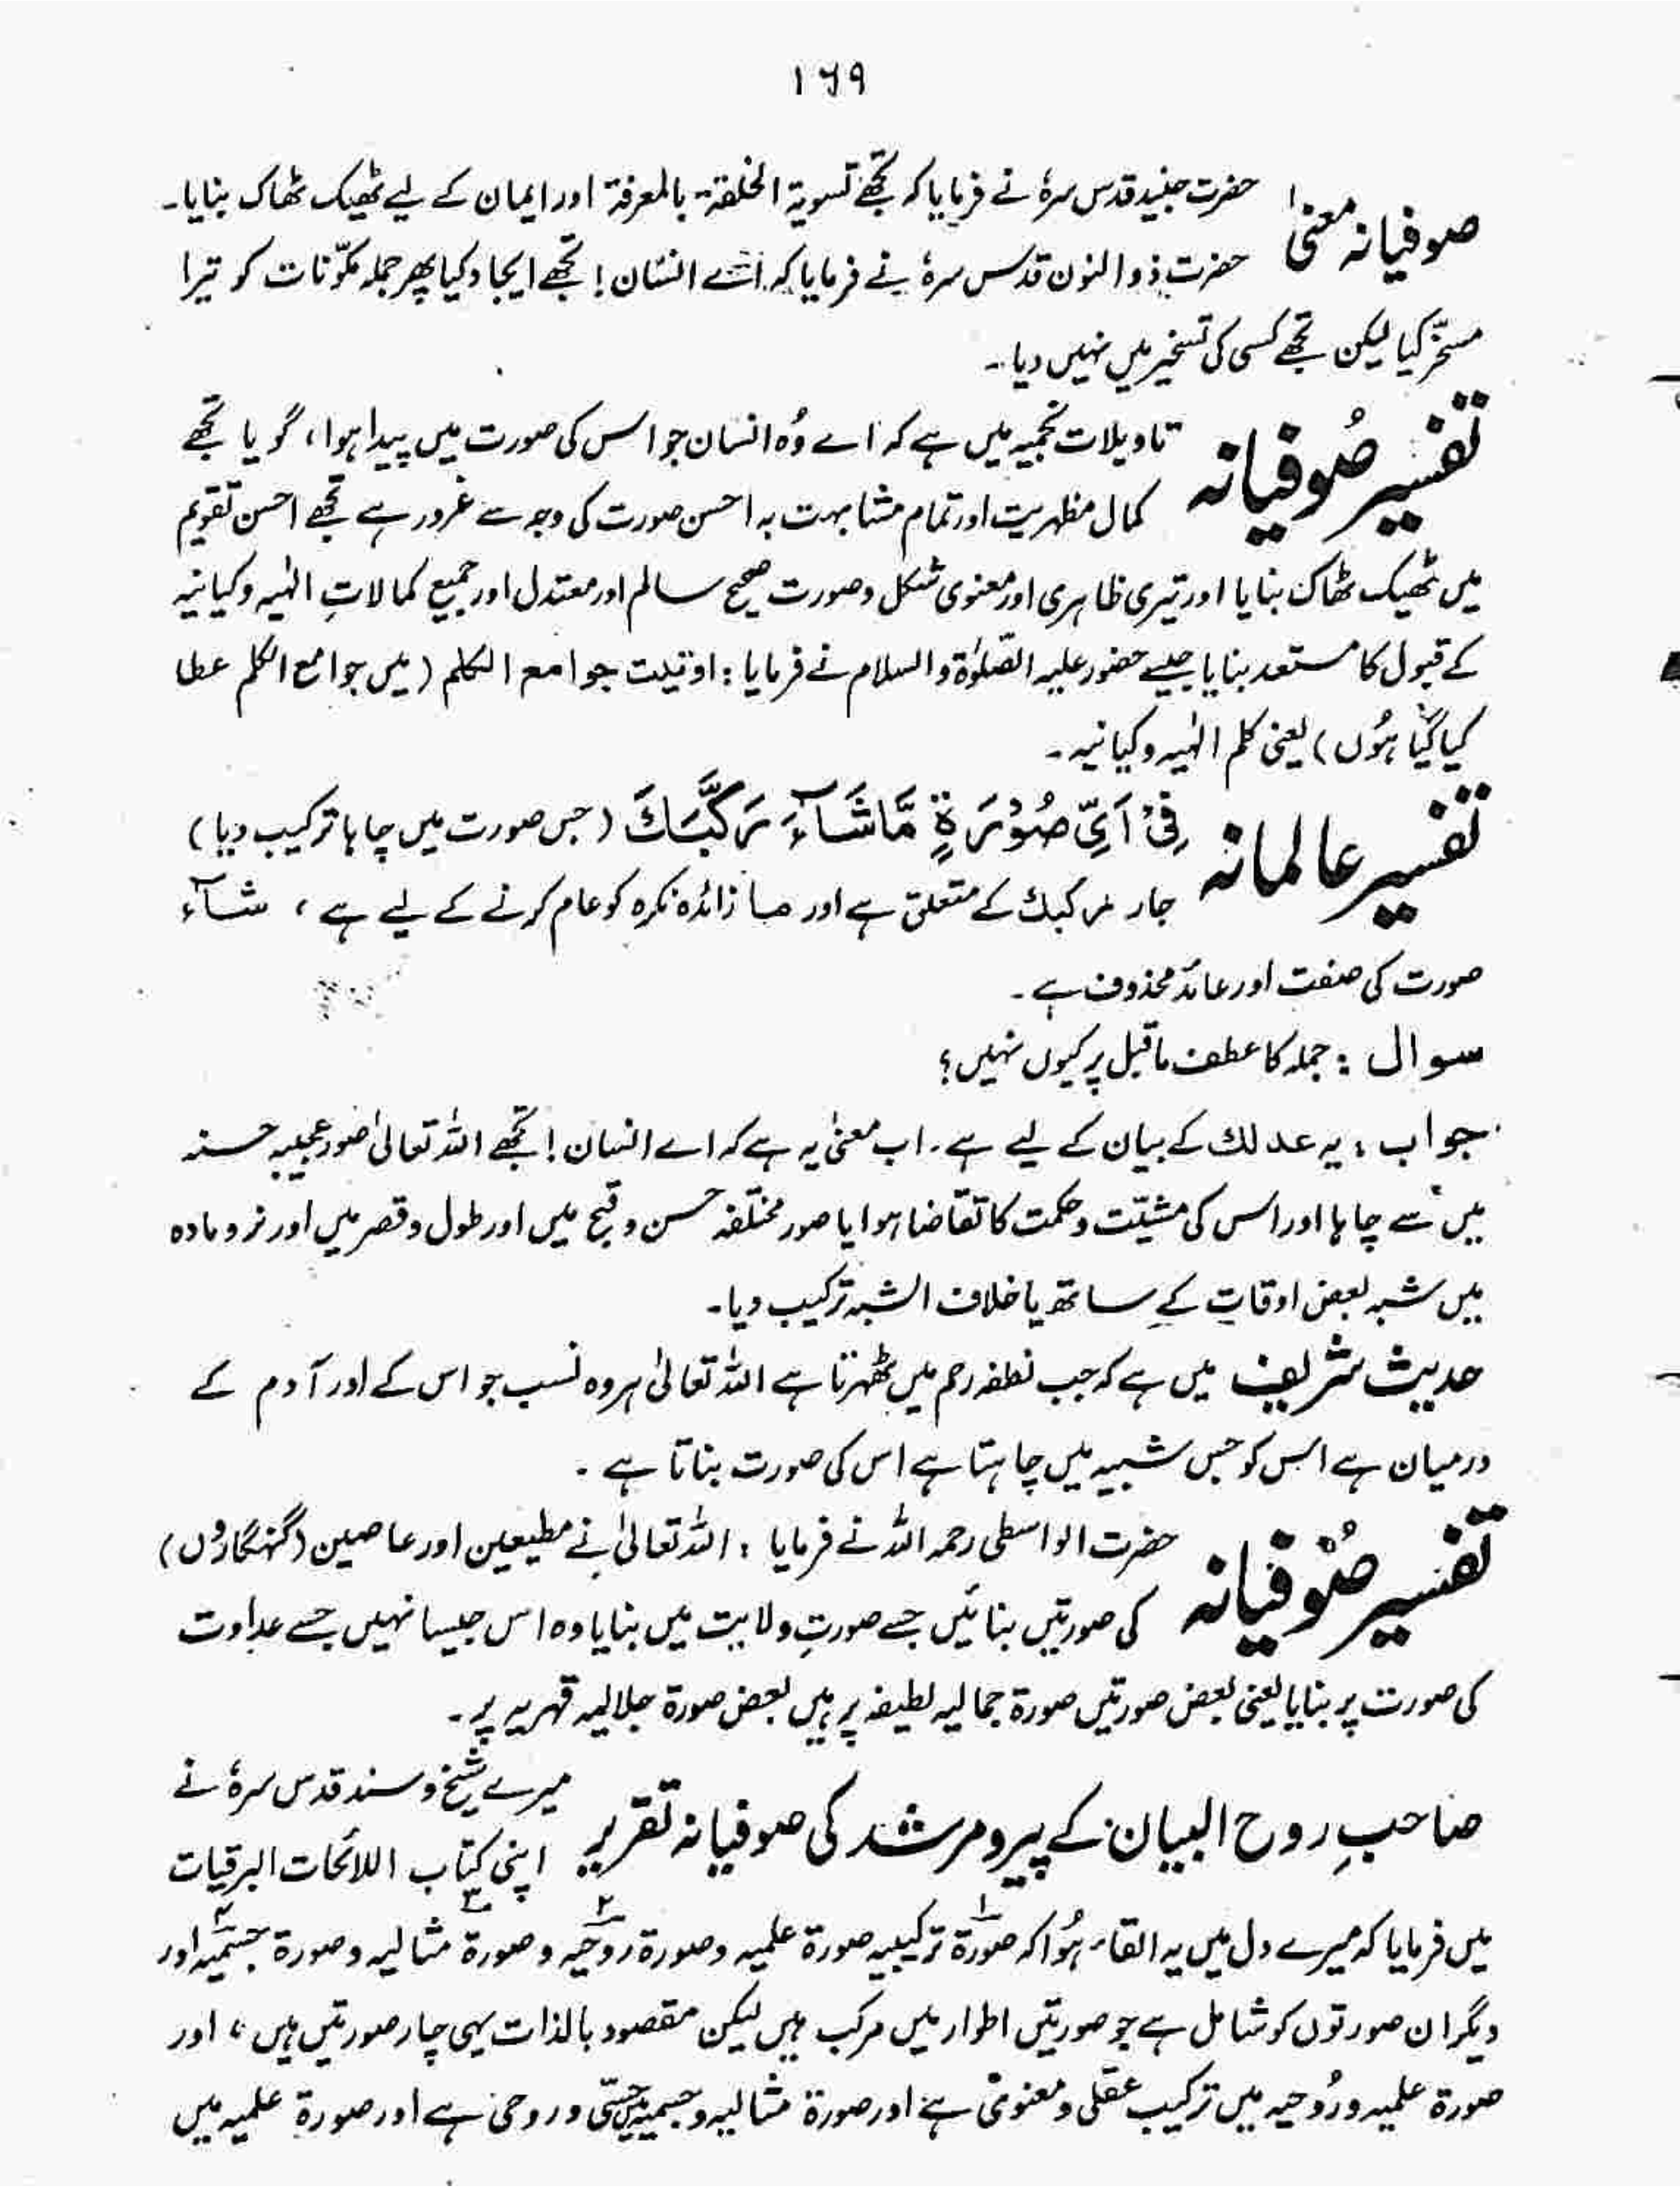 ۱۶۹
صوفیانہ معنیٰ حضرت جنید قدس سرہٗ نے فرمایا کہ تجھے تسویۃ الخلقۃ بالمعرفۃ اور ایمان کے لیے ٹھیک ٹھاک بنایا۔
حضرت ذوالنون قدس سرہٗ نے فرمایا کہ اے انسان! تجھے ایجاد کیا پھر جملہ مکوّنات کو تیرا
مسخّر کیا لیکن تجھے کسی کی تسخیر میں نہیں دیا۔
تفسیر صُوفیانہ تاویلات نجمیہ میں ہے کہ اے وُہ انسان جو اس کی صورت میں پیدا ہوا، گویا تجھے
کمال مظہریت اور تمام مشابہت بہ احسن صورت کی وجہ سے غرور ہے تجھے احسن تقویم
میں ٹھیک ٹھاک بنایا اور تیری ظاہری اور معنوی شکل و صورت صحیح سالم اور معتدل اور جمیع کمالاتِ الٰہیہ و کیانیہ
کے قبول کا مستعد بنایا جیسے حضور علیہ الصّلوٰۃ والسلام نے فرمایا : اوتیت جوامع الکلم (میں جوامع الکلم عطا
کیا گیا ہُوں) یعنی کلم الٰہیہ و کیانیہ۔
تفسیر عالمانہ فِیْ اَیِّ صُوْرَۃٍ مَّا شَآءَ رَکَّبَکَ (جس صورت میں چاہا ترکیب دیا)
جار رکبک کے متعلق ہے اور ما زائدہ نکرہ کو عام کرنے کے لیے ہے ، شآء
صورت کی صفت اور عائد محذوف ہے۔
سوال : جملہ کا عطف ماقبل پر کیوں نہیں؟
جواب : یہ عدلک کے بیان کے لیے ہے۔ اب معنیٰ یہ ہے کہ اے انسان! تجھے اللہ تعالیٰ صور عجیبہ حسنہ
میں سے چاہا اور اس کی مشیّت و حکمت کا تقاضا ہوا یا صور مختلفہ حسن و قبح میں اور طول و قصر میں اور نر و مادہ
میں شبہ بعض اوقات کے ساتھ یا خلاف الشبہ ترکیب دیا۔
حدیث شریف میں ہے کہ جب نطفہ رحم میں ٹھہرتا ہے اللہ تعالیٰ ہر وہ نسب جو اس کے اور آدم کے
درمیان ہے اس کو جس شبیہ میں چاہتا ہے اس کی صورت بناتا ہے ۔
تفسیر صُوفیانہ حضرت الواسطی رحمہ اللہ نے فرمایا : اللہ تعالیٰ نے مطیعین اور عاصین (گنہگاروں)
کی صورتیں بنائیں جسے صورتِ ولایت میں بنایا وہ اس جیسا نہیں جسے عداوت
کی صورت پر بنایا یعنی بعض صورتیں صورۃ جمالیہ لطیفہ پر ہیں بعض صورۃ جلالیہ قہریہ پر۔
صاحبِ روح البیان کے پیر و مرشد کی صوفیانہ تقریر میرے شیخ و سند قدس سرہٗ نے
اپنی کتاب اللائحات البرقیات
میں فرمایا کہ میرے دل میں یہ القاء ہُوا کہ صورۃ۱ ترکیبیہ صورۃ علمیہ و صورۃ روحیہ۲ و صورۃ۳ مثالیہ و صورۃ جسمیہ۴ اور
دیگر ان صورتوں کو شامل ہے جو صورتیں اطوار میں مرکب ہیں لیکن مقصود بالذات یہی چار صورتیں ہیں، اور
صورۃ علمیہ و رُوحیہ میں ترکیب عقلی و معنوی ہے اور صورۃ مثالیہ و جسمیہ میں حسّی و روحی ہے اور صورۃ علمیہ میں